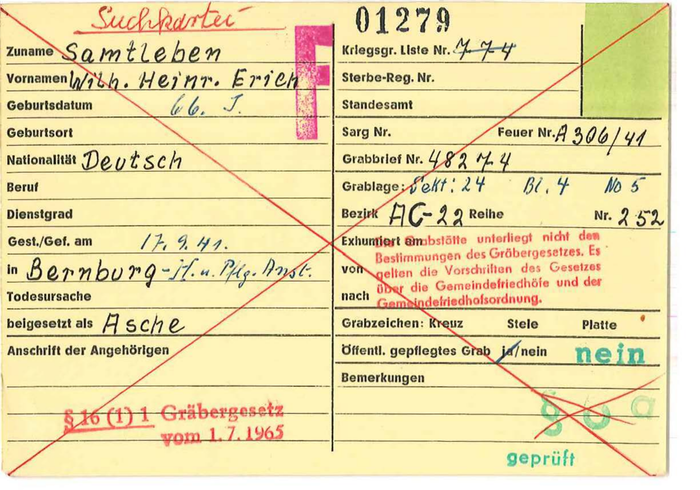 Suchkartei
F
Zuname Samtleben
Vornamen Wilh. Heinr. Erich
Geburtsdatum 66. J.
Geburtsort
Nationalität Deutsch
Beruf
Dienstgrad
Gest./Gef. am 17.9.41.
in Bernburg - H. u. Pflg. Anst.
Todesursache
beigesetzt als Asche
Anschrift der Angehörigen
§ 16 (1) 1 Gräbergesetz
vom 1.7.1965
01279
Kriegsgr. Liste Nr. 774
Sterbe-Reg. Nr.
Standesamt
Sarg Nr. Feuer Nr. A 306/41
Grabbrief Nr. 48274
Grablage: Sekt: 24 Bl. 4 No 5
Bezirk AC-22 Reihe Nr. 252
Exhumiert am
von
nach
Die Grabstätte unterliegt nicht den
Bestimmungen des Gräbergesetzes. Es
gelten die Vorschriften des Gesetzes
über die Gemeindefriedhöfe und der
Gemeindefriedhofsordnung.
Grabzeichen: Kreuz Stele Platte
Öffentl. gepflegtes Grab ja/nein nein
Bemerkungen
§ 6 a
geprüft